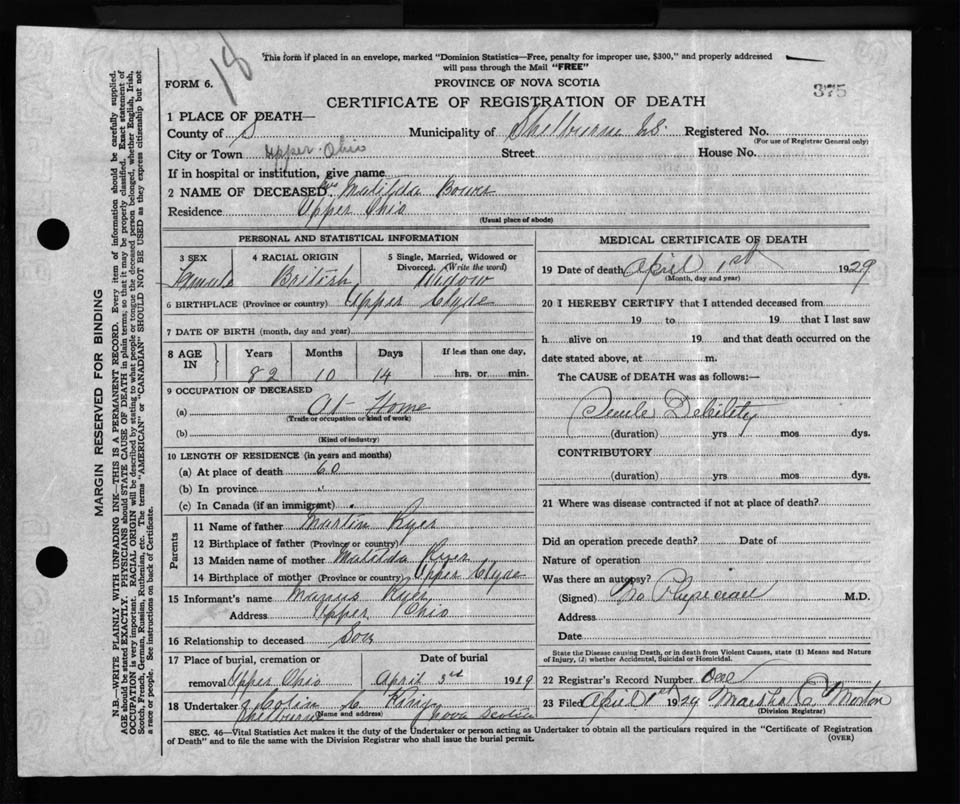 18
This form if placed in an envelope, marked "Dominion Statistics—Free, penalty for improper use, $300," and properly addressed
will pass through the Mail "FREE"
FORM 6.
PROVINCE OF NOVA SCOTIA
375
CERTIFICATE OF REGISTRATION OF DEATH
1 PLACE OF DEATH—
County of S Municipality of Shelburne Registered No.
(For use of Registrar General only)
City or Town Upper Ohio Street House No.
If in hospital or institution, give name
2 NAME OF DECEASED Matilda Bower
Residence Upper Ohio
(Usual place of abode)
PERSONAL AND STATISTICAL INFORMATION
3 SEX 4 RACIAL ORIGIN 5 Single, Married, Widowed or Divorced. (Write the word)
Female British Widow
6 BIRTHPLACE (Province or country) Upper Clyde
7 DATE OF BIRTH (month, day and year)
8 AGE IN Years Months Days If less than one day,
82 10 14 hrs. or min.
9 OCCUPATION OF DECEASED
(a) At Home
(Trade or occupation or kind of work)
(b)
(Kind of industry)
10 LENGTH OF RESIDENCE (in years and months)
(a) At place of death 60
(b) In province
(c) In Canada (if an immigrant)
Parents
11 Name of father Martin Ryer
12 Birthplace of father (Province or country)
13 Maiden name of mother Matilda Ryer
14 Birthplace of mother (Province or country) Upper Clyde
15 Informant's name
Address Upper Ohio
16 Relationship to deceased Son
17 Place of burial, cremation or removal Upper Ohio
Date of burial April 3rd 1929
18 Undertaker Colin C
(Name and address)
Shelburne Nova Scotia
MEDICAL CERTIFICATE OF DEATH
19 Date of death April 1st 1929
(Month, day and year)
20 I HEREBY CERTIFY that I attended deceased from
19 to 19 that I last saw
h alive on 19 and that death occurred on the
date stated above, at m.
The CAUSE of DEATH was as follows:—
Senile Debility
(duration) yrs mos dys.
CONTRIBUTORY
(duration) yrs mos dys.
21 Where was disease contracted if not at place of death?
Did an operation precede death? Date of
Nature of operation
Was there an autopsy?
(Signed) No Physician M.D.
Address
Date
State the Disease causing Death, or in death from Violent Causes, state (1) Means and
Nature of Injury, (2) whether Accidental, Suicidal or Homicidal.
22 Registrar's Record Number One
23 Filed April 1st 1929 Morton
(Division Registrar)
SEC. 46—Vital Statistics Act makes it the duty of the Undertaker or person acting as Undertaker to obtain all particulars required in the "Certificate of Registration
of Death" and to file the same with the Division Registrar who shall issue the burial permit.
(OVER)
MARGIN RESERVED FOR BINDING
N.B.—WRITE PLAINLY WITH UNFADING INK—THIS IS A PERMANENT RECORD. Every item of information should be carefully supplied.
AGE should be stated EXACTLY. PHYSICIANS should STATE CAUSE OF DEATH in plain terms, so that it may be properly classified. Exact statement of
OCCUPATION is very important. RACIAL ORIGIN will be described by stating to what people or tongue the deceased person belonged, whether English, Irish,
Scotch, French, German, Russian, Ruthenian, etc. The terms "AMERICAN" or "CANADIAN" SHOULD NOT BE USED as they express citizenship but not
a race or people. See instructions on back of Certificate.